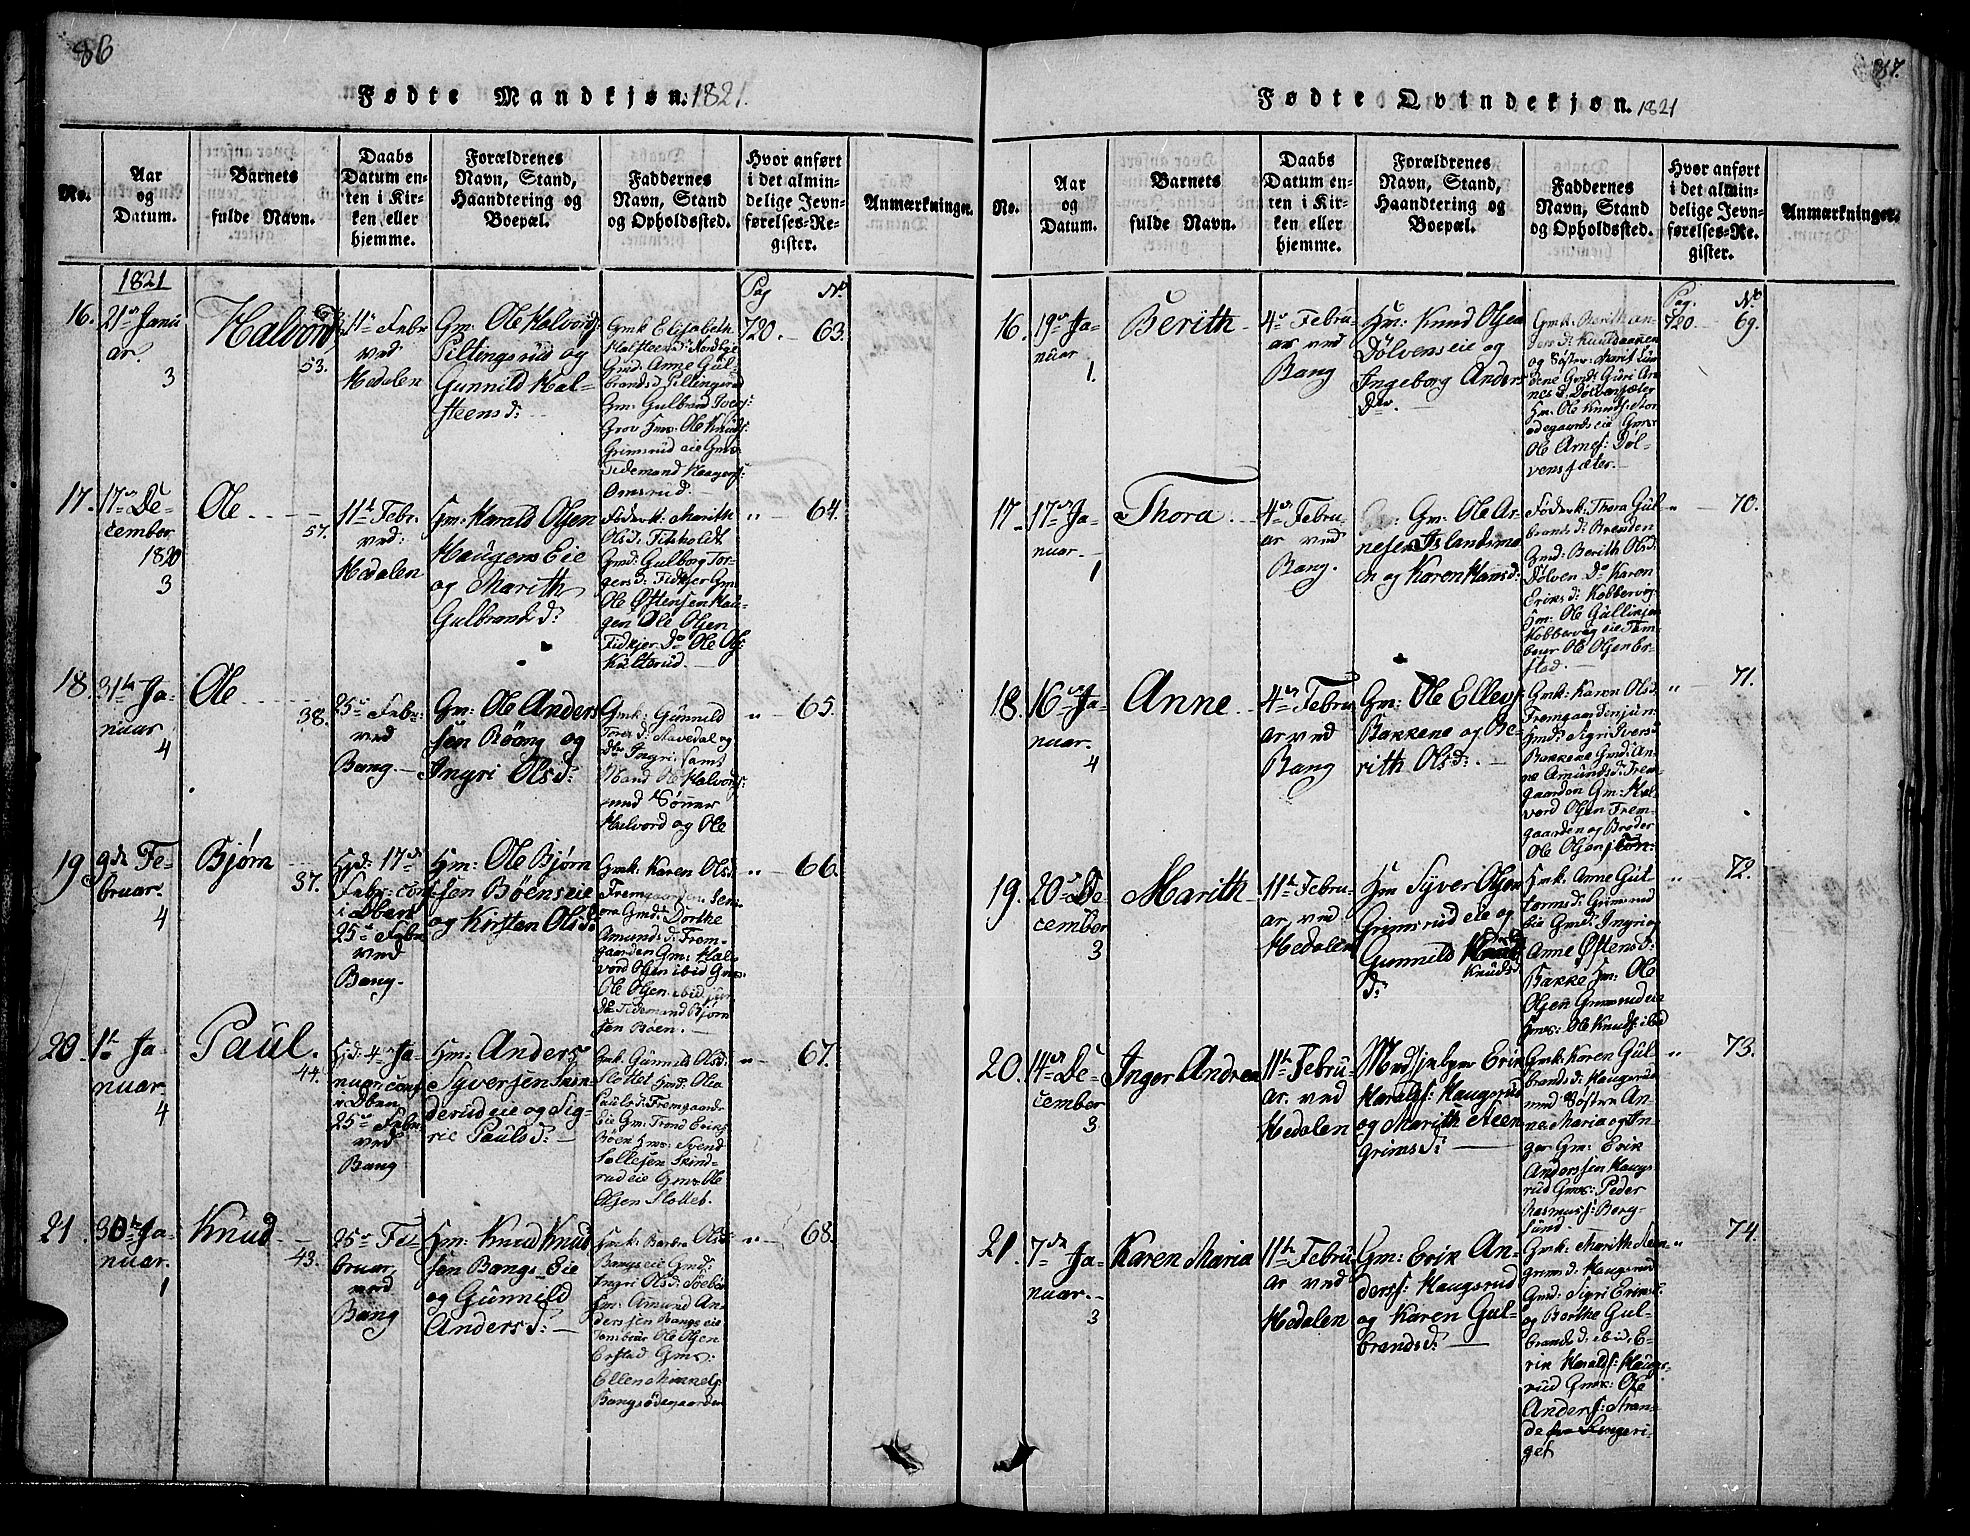 86
Fødte Mandkjøn. 1821.
No.
Aar
og
Datum.
Barnets
fulde Navn.
Daabs
Datum en-
ten i Kir-
ken eller
hjemme.
Forældrenes
Navn, Stand,
Haandtering og
Boepæl.
Faddernes
Navn, Stand
og Opholdssted.
Hvor anført
i det almin-
delige Jevn-
førelses-Re-
gister.
Anmærkninger.
1821
16.
21de Janu
ar.
3
Halvord
53.
11te Febr
ved
Hedalen
Gm: Ole Halvords
Piltingsrud og
Gunnild Hal-
steensd:
Gmk Elisabeth
Halsteensd: Nordbye
Gmd: Anne Gul-
brandsd Pillingsrud
Gm: Gulbrand Ivers:
Grov Hms: Ole Knuds:
Grimsrud eie Gms
Tidemand Haagens:
Omsrud.
Pag No
720. 63.
17.
17de De-
cember
1820
3
Ole
57.
11te Febr.
ved:
Hedalen
Hm: Harald Olsen
Haugens Eie
og Marith
Gulbrandsd:
Marith
Olsd:
Gmd: Gulborg Tor-
gersd: Fidkjer Gm
Ole Østensen Hau-
gen Ole Olsen
Fidkjer Do Ole Ols:
Kulterud.
" 64.
18.
31te Ja-
nuar
4
Ole
38.
25de Febr:
ved
Bang.
Gm: Ole Anders
sen Röang og
Ingri Olsd:
Gmk: Gunnild
Toresd: Stavedal og
Dtr Ingri, samt
Mand Ole Halvords:
med Sønner
Halvord og Ole
" 65.
19.
9de Fe-
bruar.
4
Bjørn
37.
Hjd: 17de
Febr: conf
i Dben
25de Febr
ved
Bang.
Hm: Ole Bjørn
sen Böenseie
og Kirsten Olsd:
Gmk: Karen Olsd
Fremgaarden Sen-
ora Gmd: Dorthe
Amundsd: Frem-
gaarden Gm: Hal-
vord Olsen ibid Gms:
Ole Olsen ibid
Tidemand Bjørn
sen Böen.
" 66.
20.
1te Ja-
nuar
4
Paul.
44.
Hjd: 4de Ja-
nuar: conf
i Dben
25de Febr
ved
Bang
Hm: Anders
Syversen Skin
derud eie og Sig-
rie Paulsd:
Gmk: Gunnild Olsd:
Slottet Hmd: Olea
Paulsd: Fremgaards
Eie Gm: Trond Eriks:
Böen Hms: Svend
Tollefsen Skind-
rud eie Gms: Ole
Olsen Slottet.
" 67.
21.
30te Ja-
nuar.
1
Knud
43.
25de Fe-
bruar
ved
Bang
Hm: Knud Knud
sen Bangs Eie
og Gunnild
Andersd:
Hmk: Barbra Olsd:
Bangs eie Gmd:
Ingri Olsd:
Hm: Amund An-
derssen Bangs eie
Tambour Ole Olsen
Erstad Gms:
Ellen
Bangsødegaarden
" 68.
87.
Fødte Qvindekjøn. 1821
No.
Aar
og
Datum.
Barnets
fulde Navn.
Daabs
Datum en-
ten i Kir-
ken eller
hjemme.
Forældrenes
Navn, Stand,
Haandtering og
Boepæl.
Faddernes
Navn, Stand
og Opholdssted.
Hvor anført
i det almin-
delige Jevn-
førelses-Re-
gister.
Anmærkninger.
16.
19de Ja-
nuar
1.
Berith
4de Febru-
ar ved
Bang
Hm: Knud Olsen
Dölvenseie og
Ingeborg Anders
Dtr.
Gmk: Berith An-
dersd:
og Søster Marit
Gmd: Guri Ar-
nesd: Dölvensæter
Hm: Ole Knuds:
ødegaards eie Gms:
Ole Arnes: Döl-
vensæter.
Pag. No
720 69.
17.
17de Ja-
nuar.
1
Thora
4de Febru-
ar ved
Bang.
Gm: Ole Ar-
nesen Islandsmo
en og Karen Hansd:
Föderk: Thora Gul-
brandsd: Brenden
Gmd: Berith Olsd:
Dölven Do Karen
Eriksd: Kobbervig
Hm: Ole Gulliksen
Kobbervig eie Tam-
bour Ole Olsen Er-
stad.
" 70.
18.
16de Ja-
nuar.
4
Anne
4de Febru
ar ved
Bang
Gm: Ole Ellevs:
Bakkene og Be-
rith Olsd:
Gmk: Karen Olsd:
Fremgaarden jun:
Hmd: Sigri Iversd:
Bakkene Gmd: An-
ne Amundsd: Frem
gaarden Gm: Hal
vord Olsen Frem-
gaarden og Broder
Ole Olsen
" 71.
19.
20de De-
cember
3
Marith
11te Febru-
ar, ved
Hedalen
Hm Syver Olsen
Grimsrud eie og
Gunnild Knuds
d:
Hmk: Anne Gut-
tormsd: Grimsrud
Eie Gmd: Ingri og
Anne Østensd:
Bakke Hm: Ole
Olsen Grimsrud eie
Hms: Ole Knuds: ibid
" 72.
20.
14de De-
cember
3
Inger Andrea
11te Febru
ar ved
Hedalen
Erik
Haralds: Haugsrud
og Marith Steen
Grimsd:
Gmk: Karen Gul-
brandsd: Haugsrud
med Søstre An-
ne Maria og In-
ger Gm: Erik
Anderssen Haugs
rud Gms: Peder
Rasmuss: Berg-
sund
" 73.
21.
7de Ja-
nuar.
3
Karen Maria
11te Febru
ar ved
Hedalen
Gm: Erik An-
derss: Haugsrud
og Karen Gul-
brandsd:
Gmk: Marith Steen
Grimsd: Haugsrud
Gmd: Sigri Eriksd:
og Börthe Gul-
brandsd: ibid: E-
rik Haralds: Haugs-
rud Gmk: Ole
Anders: Stran-
de fra Ringeri-
get
" 74.